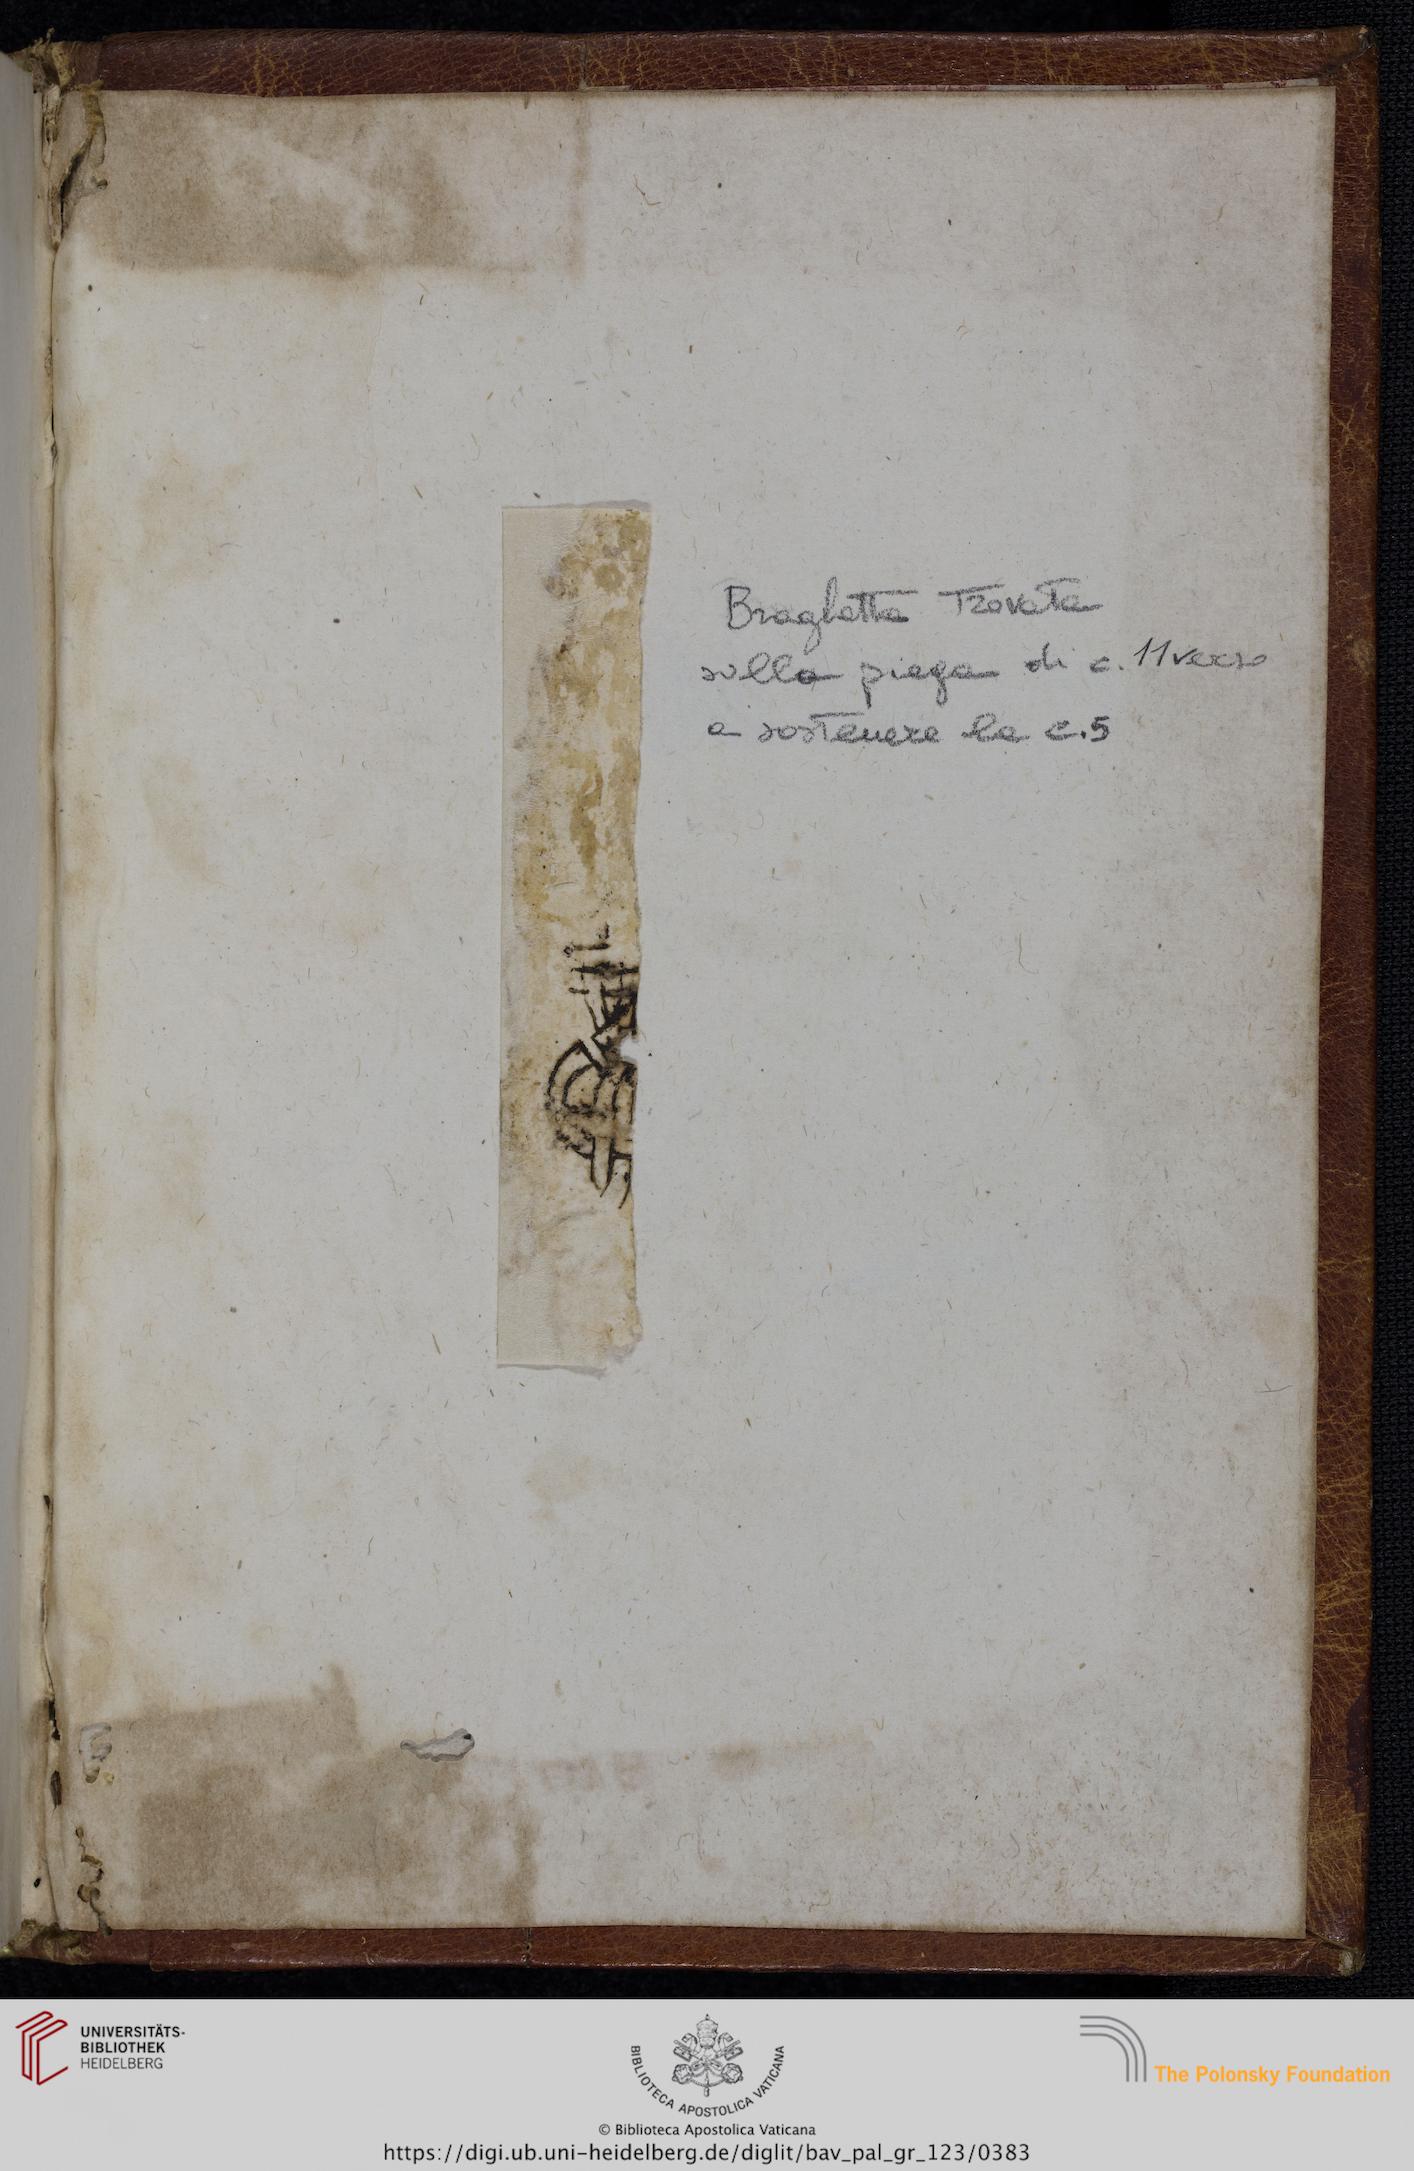 Braghetta trovata
sulla piega di c. 11 verso
a sostenere la c.5
UNIVERSITÄTS-
BIBLIOTHEK
HEIDELBERG
BIBLIOTECA APOSTOLICA VATICANA
The Polonsky Foundation
© Biblioteca Apostolica Vaticana
https://digi.ub.uni-heidelberg.de/diglit/bav_pal_gr_123/0383